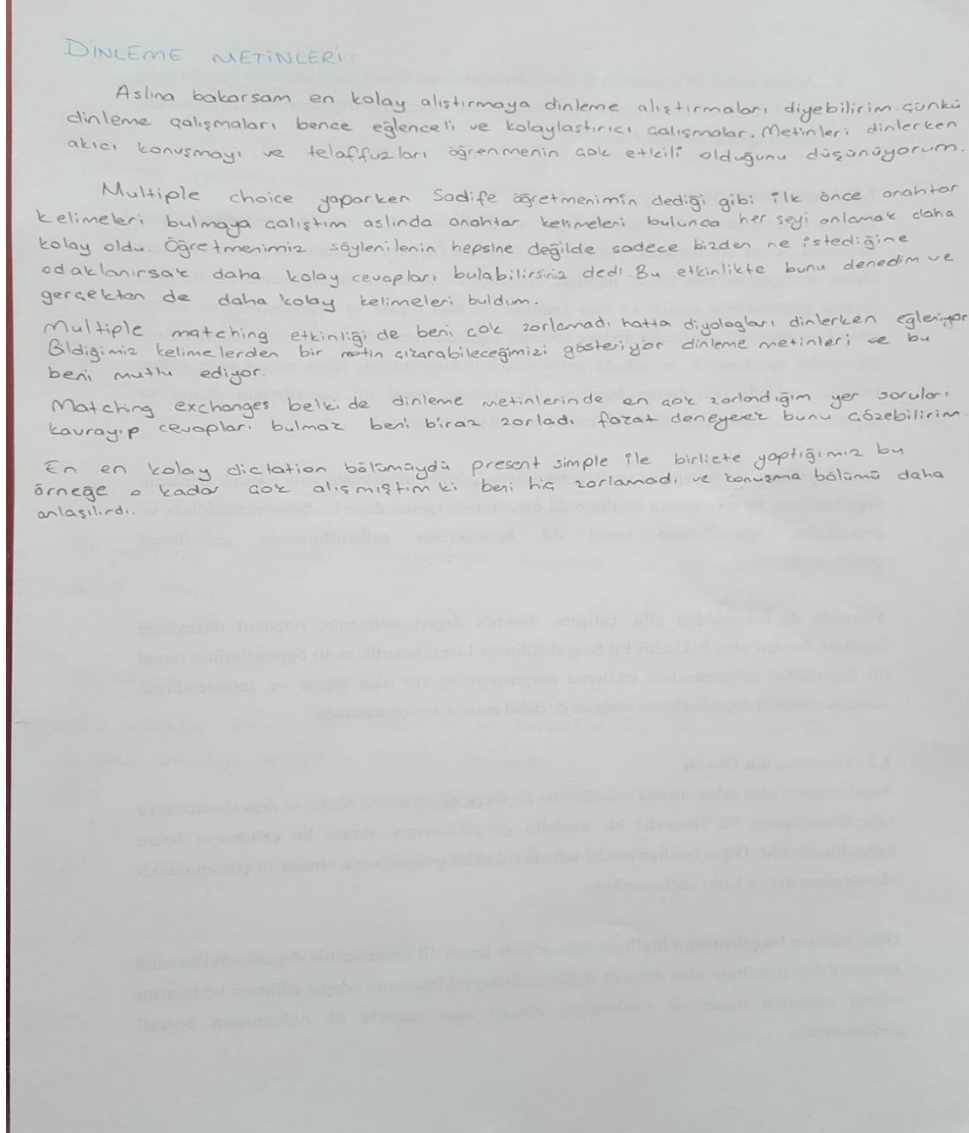 DİNLEME METİNLERİ:
Aslına bakarsam en kolay alıştırmaya dinleme alıştırmaları diyebilirim çünkü
dinleme çalışmaları bence eğlenceli ve kolaylaştırıcı çalışmalar. Metinleri dinlerken
akıcı konuşmayı ve telaffuzları öğrenmenin çok etkili olduğunu düşünüyorum.
Multiple choice yaparken Sadife öğretmenimin dediği gibi ilk önce anahtar
kelimeleri bulmaya çalıştım aslında anahtar kelimeleri bulunca her şeyi anlamak daha
kolay oldu. Öğretmenimiz söylenilenin hepsine değilde sadece bizden ne istediğine
odaklanırsak daha kolay cevapları bulabilirsiniz dedi. Bu etkinlikte bunu denedim ve
gerçekten de daha kolay kelimeleri buldum.
Multiple matching etkinliği de beni çok zorlamadı hatta diyalogları dinlerken
Bildiğimiz kelimelerden bir metin çıkarabileceğimizi gösteriyor dinleme metinleri ve bu
beni mutlu ediyor.
Matching exchanges belki de dinleme metinlerinde en çok zorlandığım yer soruları
kavrayıp cevapları bulmak beni biraz zorladı fakat deneyerek bunu çözebilirim
En en kolay dictation bölümüydü present simple ile birlikte yaptığımız bu
örneğe o kadar çok alışmıştım ki beni hiç zorlamadı ve konuşma bölümü daha
anlaşılırdı.